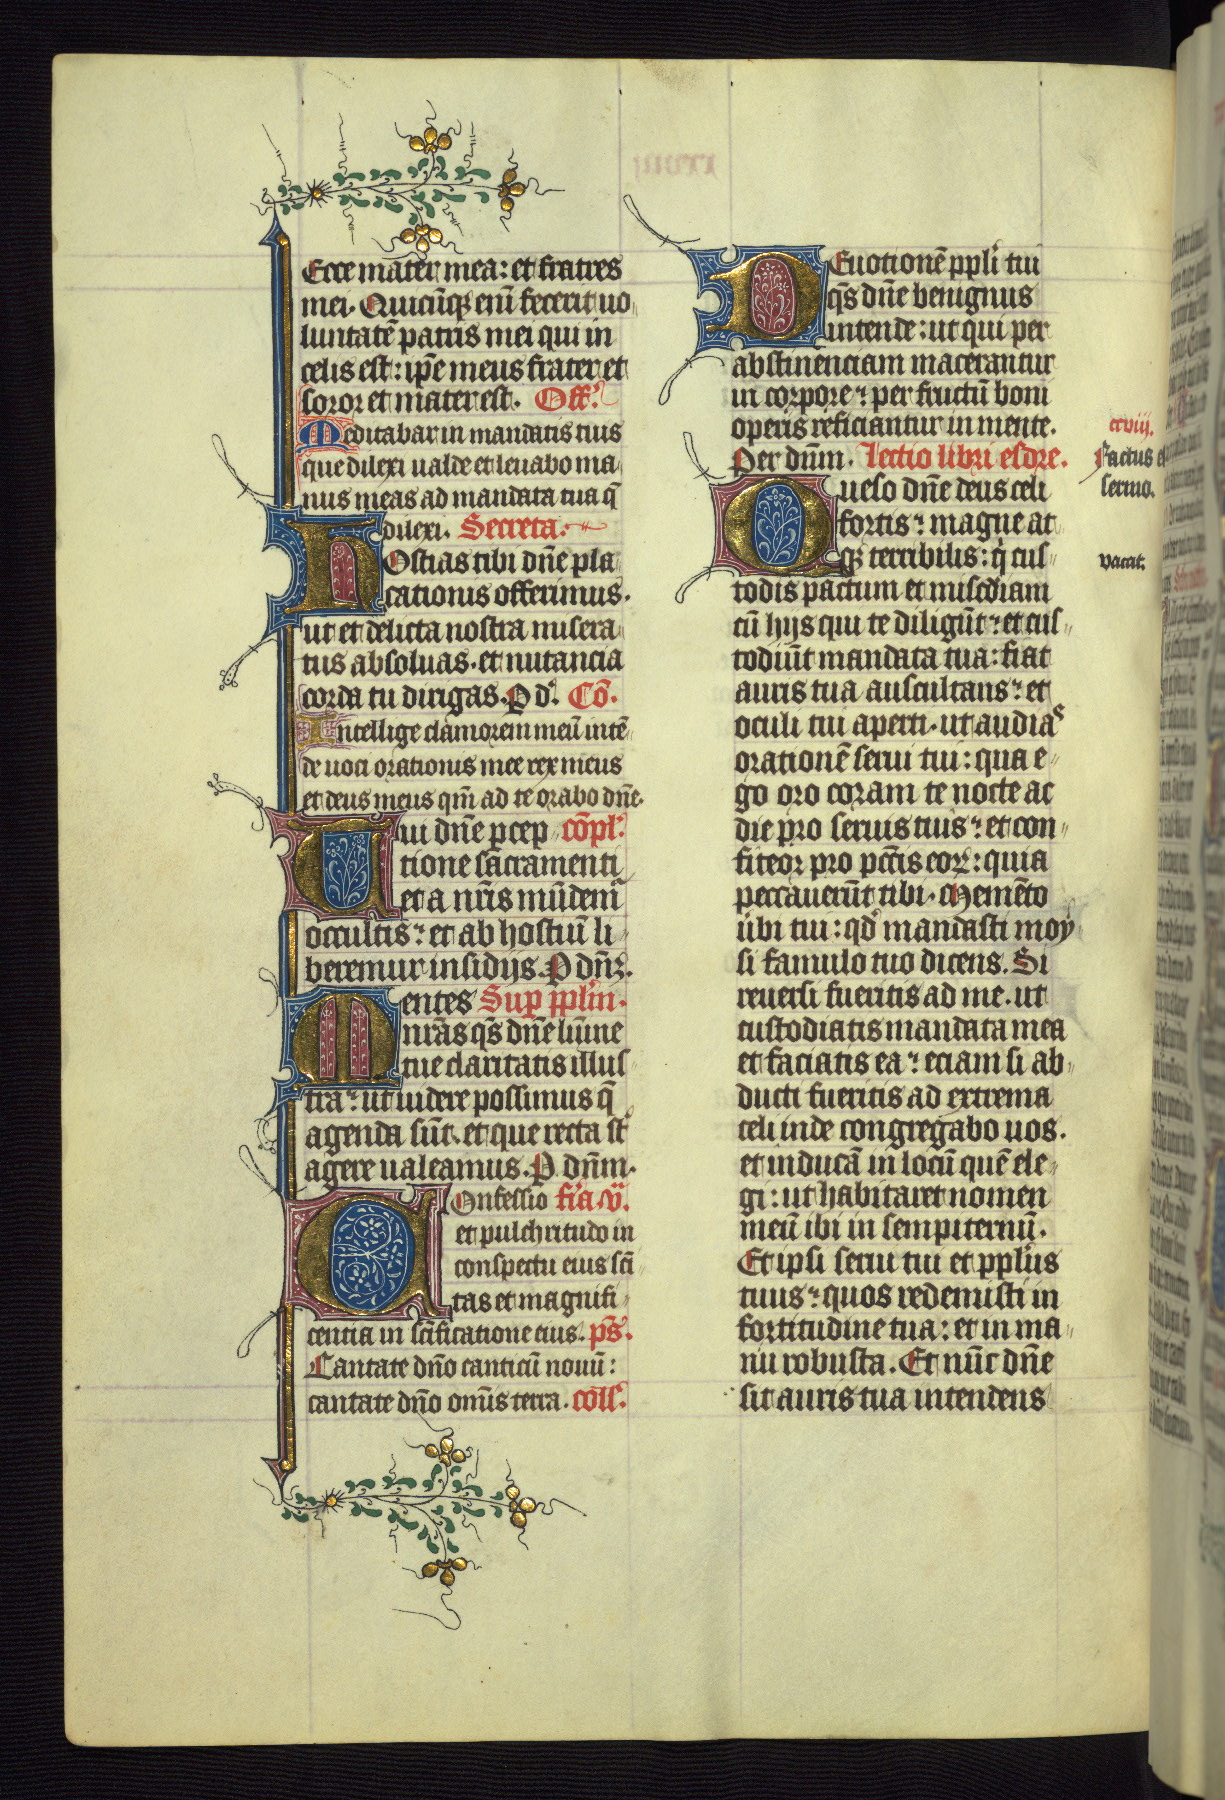 Ecce mater mea: et fratres
mei. Quicūq; eni᷑ fecerit uo
luntatē patris mei qui in
celis est: ip̄e meus frater et
soror et mater est. Off.
Meditabar in mandatis tuis
que dilexi ualde et leuabo ma
nus meas ad mandata tua q̄
dilexi. Secreta.
Hostias tibi dn̄e pla
cationis offerimus.
ut et delicta nostra misera
tus absoluas. et nutancia
corda tu dirigas. P d. Cō.
Intellige clamorem meū intē
de uoci orationis mee rex meus
et deus meus qm̄ ad te orabo dn̄e.
Tui dn̄e p̄cep cōpl.
tione sācramenti
et a nr̄is mūdem᷑
occultis: et ab hostiū li
beremur insidijs. P dn̄ꝫ.
Mentes Sup pplm̄.
nr̄as qs̄ dn̄e lumīe
tue claritatis illus
tra: ut uidere possimus q̄
agenda sūt. et que recta st̄
agere ualeamus. P dn̄m.
Confessio fr̄ia .v.
et pulchritudo in
conspectu eius sc̄i
tas et magnifi
centia in sc̄ificatione eius. ps̄.
Cantate dn̄o canticū nouū:
cantate dn̄o om̄is terra. coll̄.
Deuotionē ppli tui
qs̄ dn̄e benignus
intende: ut qui per
abstinenciam macerantur
in corpore: per fructū boni
operis reficiantur in mente.
Per dn̄m. Lectio libri esdre.
Queso dn̄e deus celi
fortis: magne at
q; terribilis: q̇ cus
todis pactum et mis̄c̄diam
cū hijs qui te diligūt: et cus
todiūt mandata tua: fiat
auris tua auscultans: et
oculi tui aperti. ut audias
orationē serui tui: qua e
go oro coram te nocte ac
die pro seruis tuis: et con
fiteor pro pccīs eoꝝ: quia
peccauerūt tibi. Memēto
ūbi tui: qd̄ mandasti moy
si famulo tuo dicens. Si
reuersi fueritis ad me. ut
custodiatis mandata mea
et faciatis ea: eciam si ab
ducti fueritis ad extrema
celi inde congregabo uos.
et inducā in locū quē ele
gi: ut habitaret nomen
meū ibi in sempiternū.
Et ipsi serui tui et ppl̄us
tuus: quos redemisti in
fortitudine tua: et in ma
nu robusta. Et nūc dn̄e
sit auris tua intendens
Factus e
sermo.
vacat.